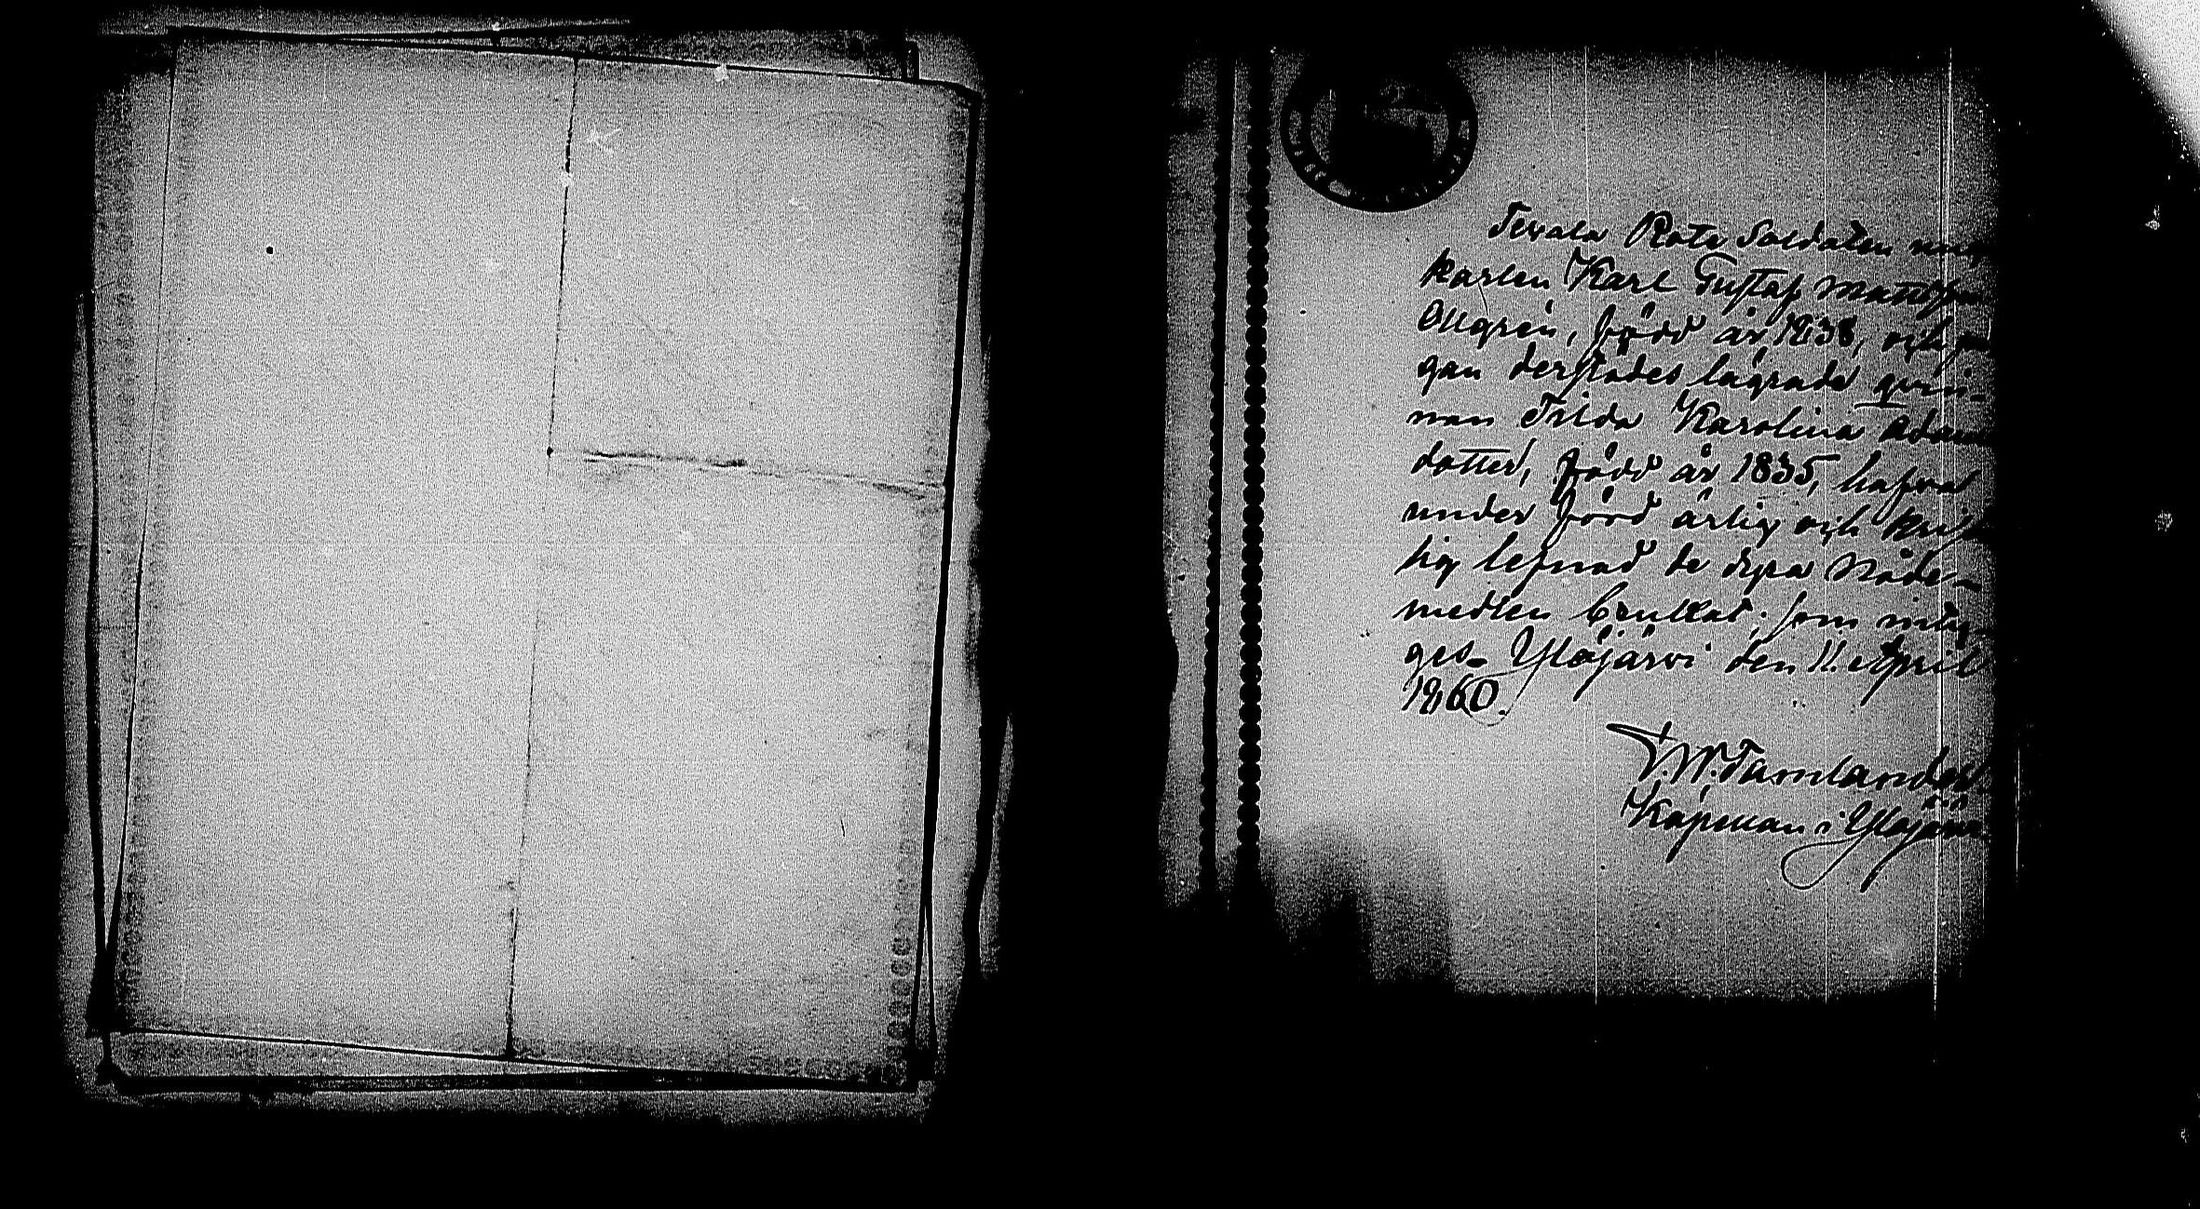 Rote Soldaten ung
karlen Karl Gustaf Matts
Ollgrén, född år 1838, och pi
gan derstädes lägrade qvin-
nan Frida Karolina Adams
dotter, född år 1835, hafva
under förd ärlig och krist
lig lefnad de dyra Nåde-
medlen brukat; som intÿ
ges. Ylöjärvi den 11 April
1860.
F. W. Tamlander.
Kapellan i Ylöjärvi